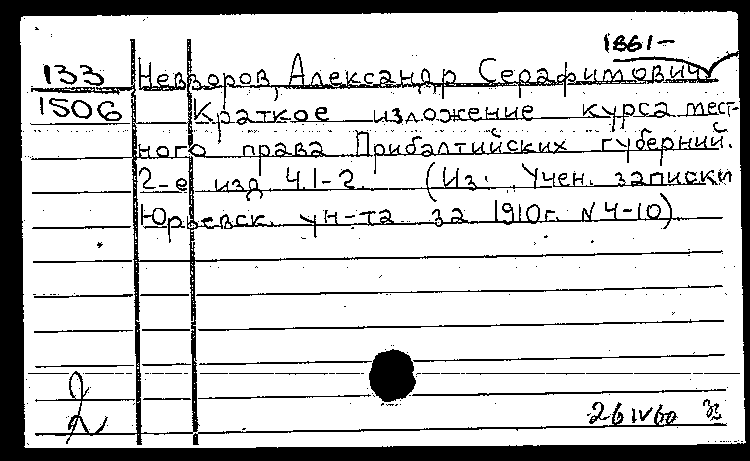 1861-
133 Невзоров, Александр Серафимович
1506 Краткое изложение курса мест-
ного права Прибалтийских губерний.
2-е изд Ч.1-2. (Из: Учен. записки
Юрьевск. ун-та за 1910г. N 4-10)
2
26 IV 60